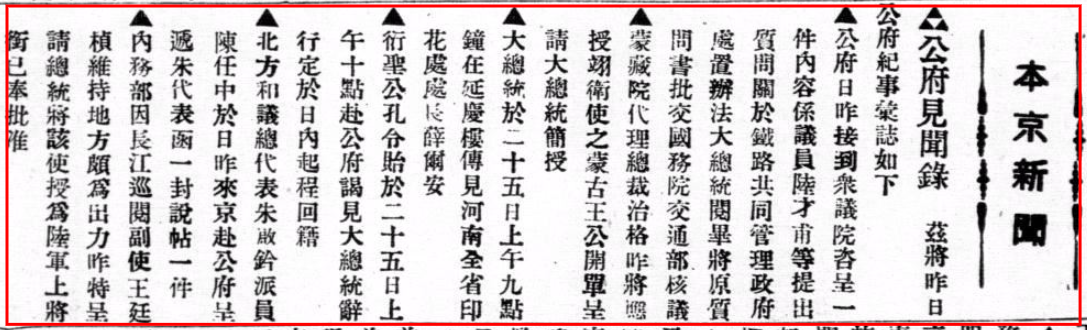 本京新聞
▲公府見聞錄　茲將昨日
公府紀事彙誌如下
▲公府日昨接到衆議院咨呈一
件內容係議員陸才甫等提出
質問關於鐵路共同管理政府
處置辦法大總統閱畢將原質
問書批交國務院交通部核議
▲蒙藏院代理總裁治格昨將應
授翊衛使之蒙古王公開單呈
請大總統簡授
▲大總統於二十五日上午九點
鐘在延慶樓傳見河南全省印
花處處長薛爾安
▲衍聖公孔令貽於二十五日上
午十點赴公府謁見大總統辭
行定於日內起程回籍
▲北方和議總代表朱啟鈐派員
陳任中於日昨來京赴公府呈
遞朱代表函一封說帖一件
▲內務部因長江巡閱副使王廷
楨維持地方頗爲出力昨特呈
請總統將該使授爲陸軍上將
銜已奉批准